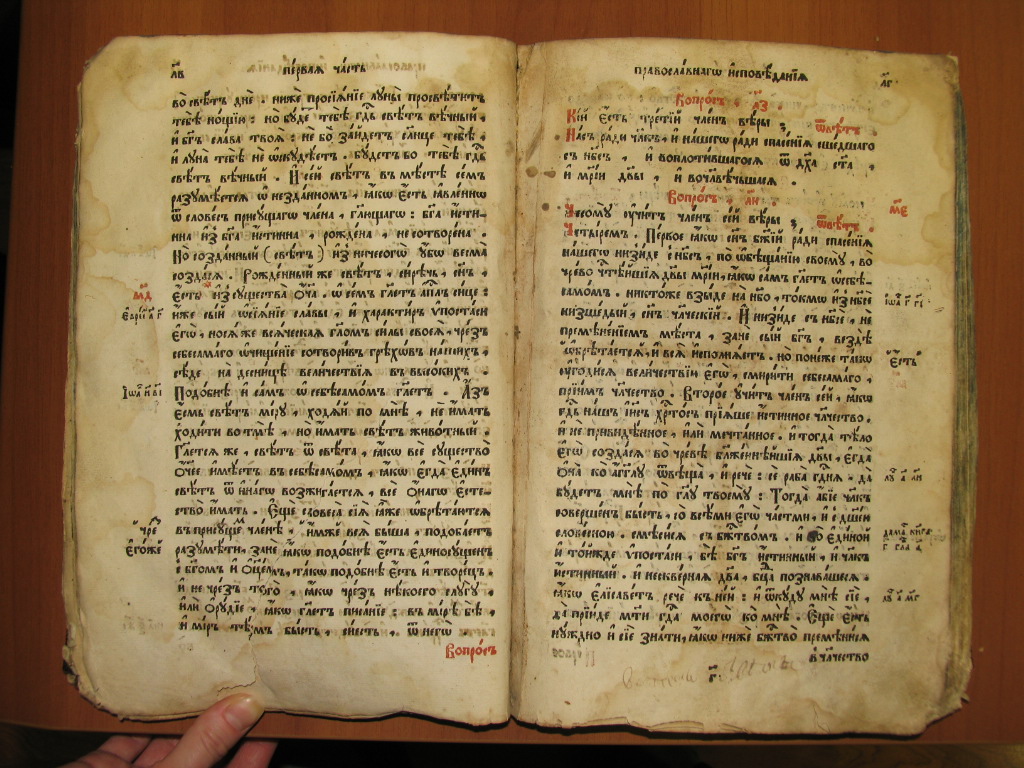 л҃в
первая часть
во свѣтъ дне . ниже просіѧніе луны просвѣтитъ
тебѣ нощію : но буде тебѣ гдь свѣтъ вѣчный ,
и бг҃ъ слава твоѧ : не бо заидетъ слнце тебѣ ,
и луна тебѣ не ѡскудѣетъ . будетъ бо тебѣ гдь
свѣтъ вѣчный . И сей свѣтъ въ мѣстѣ семъ
разумѣетсѧ ѡ незданномъ , ꙗкѡ єсть ꙗвленнѡ
ѿ словесъ присущагѡ члена , гл҃ющагѡ : бг҃а исти-
нна из̾ бг҃а истинна , рождена , не сотворена .
Но созданный ( свѣтъ ) из̾ ничесогѡ убѡ весма
создасѧ . Рожденный же свѣтъ , сирѣчь , сн҃ъ ,
єсть из̾ существа Оча . ѡ семъ гл҃етъ ап҃лъ сице :
иже сый сіѧніе славы , и характиръ упостаси
єгѡ , носѧ же всѧческаѧ гл҃омъ силы своеѧ , чрезъ
себесамаго ѡчищеніе сотворивъ грѣхѡвъ нашихъ ,
сѣде на десницѣ величествіѧ въ высокихъ .
Подобнѣ и самъ ѡ себѣсамомъ гл҃етъ . Азъ
єсмь свѣтъ міру , ходѧй по мнѣ , не имать
ходити во тмѣ , но имать свѣтъ животный .
Гл҃етсѧ же , свѣтъ ѿ свѣта , ꙗкѡ все существо
Очее имуетъ въ себѣсамомъ , ꙗкѡ єгда єдинъ
свѣтъ ѿ инагѡ возжигаетсѧ , все онагѡ єсте-
ство имать . єще словеса сіѧ ꙗже ѡбрѣтаютсѧ
въ присущѣ членѣ , имже всѧ быша , подобаетъ
разумѣти , зане ꙗкѡ подобнѣ єсть єдиносущенъ
с бг҃омъ и оц҃емъ , такѡ подобнѣ єсть и творецъ .
и не чрезъ того , ꙗкѡ чрезъ нѣкоего слугу ,
или орудіе , ꙗкѡ гл҃етъ писаніе : въ мірѣ бѣ ,
и міръ тѣмъ бысть , сиесть , ѿ негѡ .
Вопросъ
м҃д
Іѡа и҃ в҃і
чре
єгоже
православнагѡ исповѣданіѧ
л҃г
Вопросъ . л҃з .
Кій єсть третій членъ вѣры ; ѿвѣтъ .
Насъ ради члкъ , и нашегѡ ради спасеніѧ сшедшаго
съ нб҃съ , и воплотившагосѧ ѿ дх҃а ст҃а ,
и мр҃іи дв҃ы , и вочл҃вѣчьшасѧ .
Вопросъ , л҃и .
Чесому учитъ членъ сей вѣры ; ѿвѣтъ .
Четыремъ . Первое ꙗкѡ сн҃ъ бж҃ій ради спасеніѧ
нашегѡ низиде с нб҃съ , по ѡбѣщанію своему , во
чрево чт҃ѣйшіѧ дв҃ы мр҃іи , ꙗкѡ самъ гл҃етъ ѡ себѣ-
самомъ . никтоже взыде на нб҃о , токмѡ из̾ нб҃се
низшедый , сн҃ъ чл҃ческій . И низиде съ нб҃сѣ , не
премѣненіемъ мѣста , зане сый бг҃ъ , вездѣ
ѡбрѣтаетсѧ , и всѧ исполнѧетъ . но понеже такѡ
угодисѧ величествіи єгѡ , смирити себесамаго ,
пріим̾ чл҃чество . Второе учитъ членъ сей , ꙗкѡ
гд҃ь нашъ іи҃съ хрт҃осъ пріѧше истинное чл҃чество .
и не привидѣнное , или мечтанное . и тогда тѣло
єгѡ создасѧ во чревѣ блж҃еннѣйшіѧ дв҃ы , єгда
она ко агг҃лу ѿвѣща , и рече : се раба гдн҃ѧ . да
будетъ мнѣ по гл҃у твоему : Тогда абіе чл҃къ
совершенъ бысть , со всѣми єгѡ частми , и с дш҃ею
словесною . смѣсисѧ съ бж҃твомъ . и во єдиной
и тойжде упостаси , бѣ бг҃ъ истинный , и чл҃къ
истинный . и нескверная дв҃а , бц҃а познавашесѧ .
ꙗкѡ єлисаветъ рече къ ней : и ѿкуду мнѣ сіе ,
да пріиде мт҃и гд҃а моегѡ ко мнѣ . єще єсть
нуждно и сіе знати , ꙗкѡ ниже бж҃тво премѣнисѧ
в чл҃чество
м҃є
Іѡа г҃ г҃і
єсть
лу҃ а҃ л҃и
лу҃ а҃ м҃г
г҃